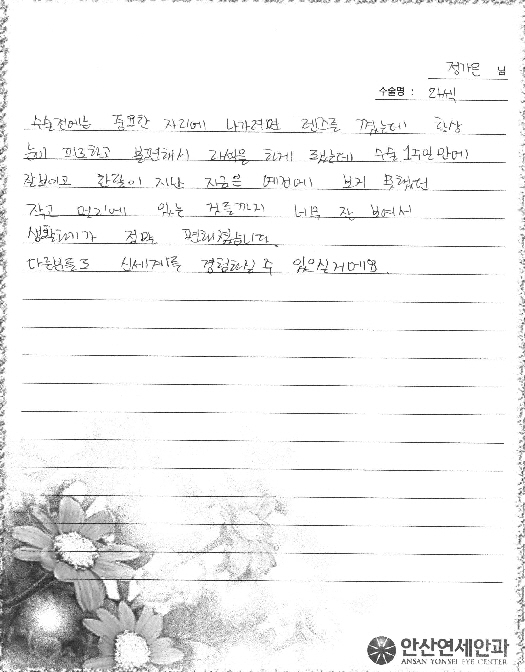 정가은 님
수술명 : 라식
수술전에는 중요한 자리에 나가려면 렌즈를 꼈는데 항상
눈이 피로하고 불편해서 라식을 하게 됐는데 수술 1주일만에
잘보이고 한달이 지난 지금은 예전에 보지 못했던
작고 멀리에 있는 것들까지 너무 잘 보여서
생활하기가 정말 편해졌습니다.
다른분들도 신세계를 경험하실 수 있으실거에요.
안산연세안과
ANSAN YONSEI EYE CENTER